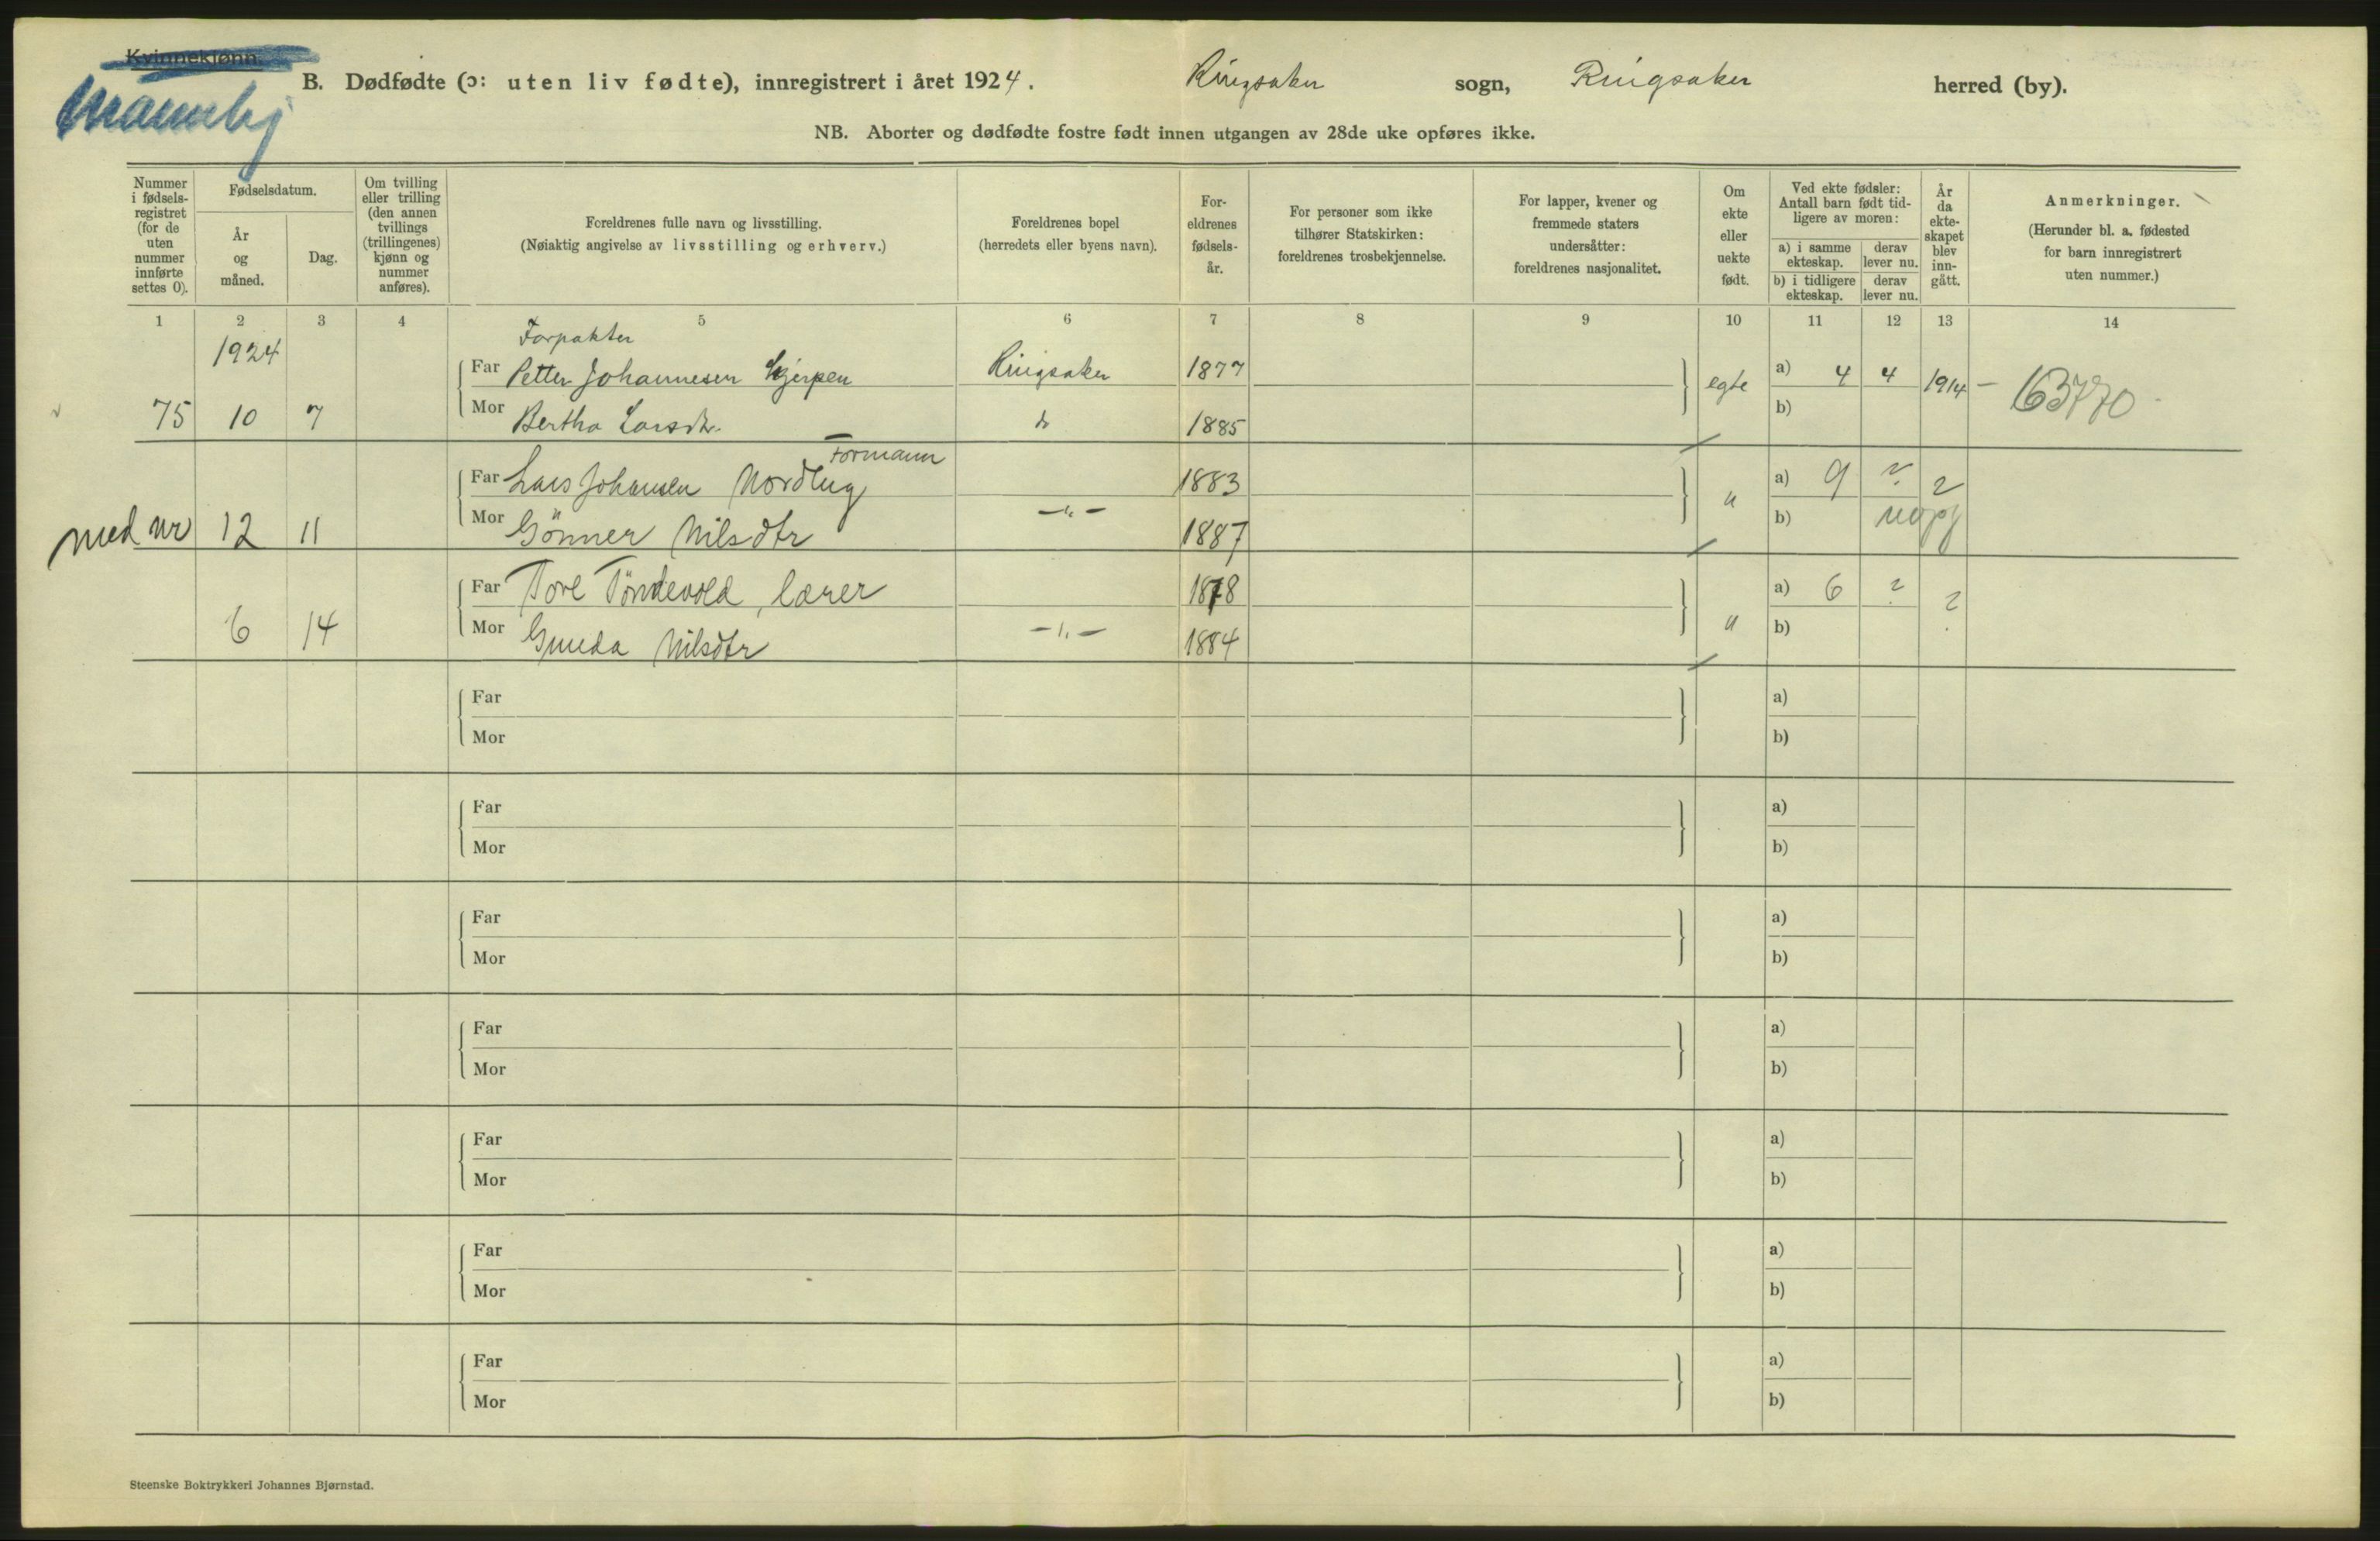 Kvinnekjønn.
B. Dødfødte (ɔ: uten liv fødte), innregistrert i året 1924. Ringsaker sogn, Ringsaker herred (by).
NB. Aborter og dødfødte fostre født innen utgangen av 28de uke opføres ikke.
Nummer i fødsels-registret (for de uten nummer innførte settes 0).
Fødselsdatum.
År og måned.
Dag.
Om tvilling eller trilling (den annen tvillings (trillingenes) kjønn og nummer anføres).
Foreldrenes fulle navn og livsstilling.
(Nøiaktig angivelse av livsstilling og erhverv.)
Foreldrenes bopel
(herredets eller byens navn).
For-eldrenes fødsels-år.
For personer som ikke tilhører Statskirken: foreldrenes trosbekjennelse.
For lapper, kvener og fremmede staters undersåtter: foreldrenes nasjonalitet.
Om ekte eller uekte født.
Ved ekte fødsler: Antall barn født tid-ligere av moren:
a) i samme ekteskap.
derav lever nu.
b) i tidligere ekteskap.
derav lever nu.
År da ekte-skapet blev inn-gått.
Anmerkninger.
(Herunder bl. a. fødested for barn innregistrert uten nummer.)
1 2 3 4 5 6 7 8 9 10 11 12 13 14
1924 Forpakter
Far Petter Johannesen Skjerpen Ringsaker 1877 egte a) 4 4 1914 – 163770
75 10 7 Mor Bertha Larsdtr. do 1885 b)
Formann
Far Lars Johansen Nordlug 1883 " a) 9 ? ?
med nr 12 11 Mor Gönner Nilsdtr –"– 1887 b)
Far Tore Töndevold, lærer 1878 " a) 6 ? ?
6 14 Mor Gunda Nilsdtr –"– 1884 b)
Far a)
Mor b)
Far a)
Mor b)
Far a)
Mor b)
Far a)
Mor b)
Far a)
Mor b)
Far a)
Mor b)
Far a)
Mor b)
Steenske Boktrykkeri Johannes Bjørnstad.